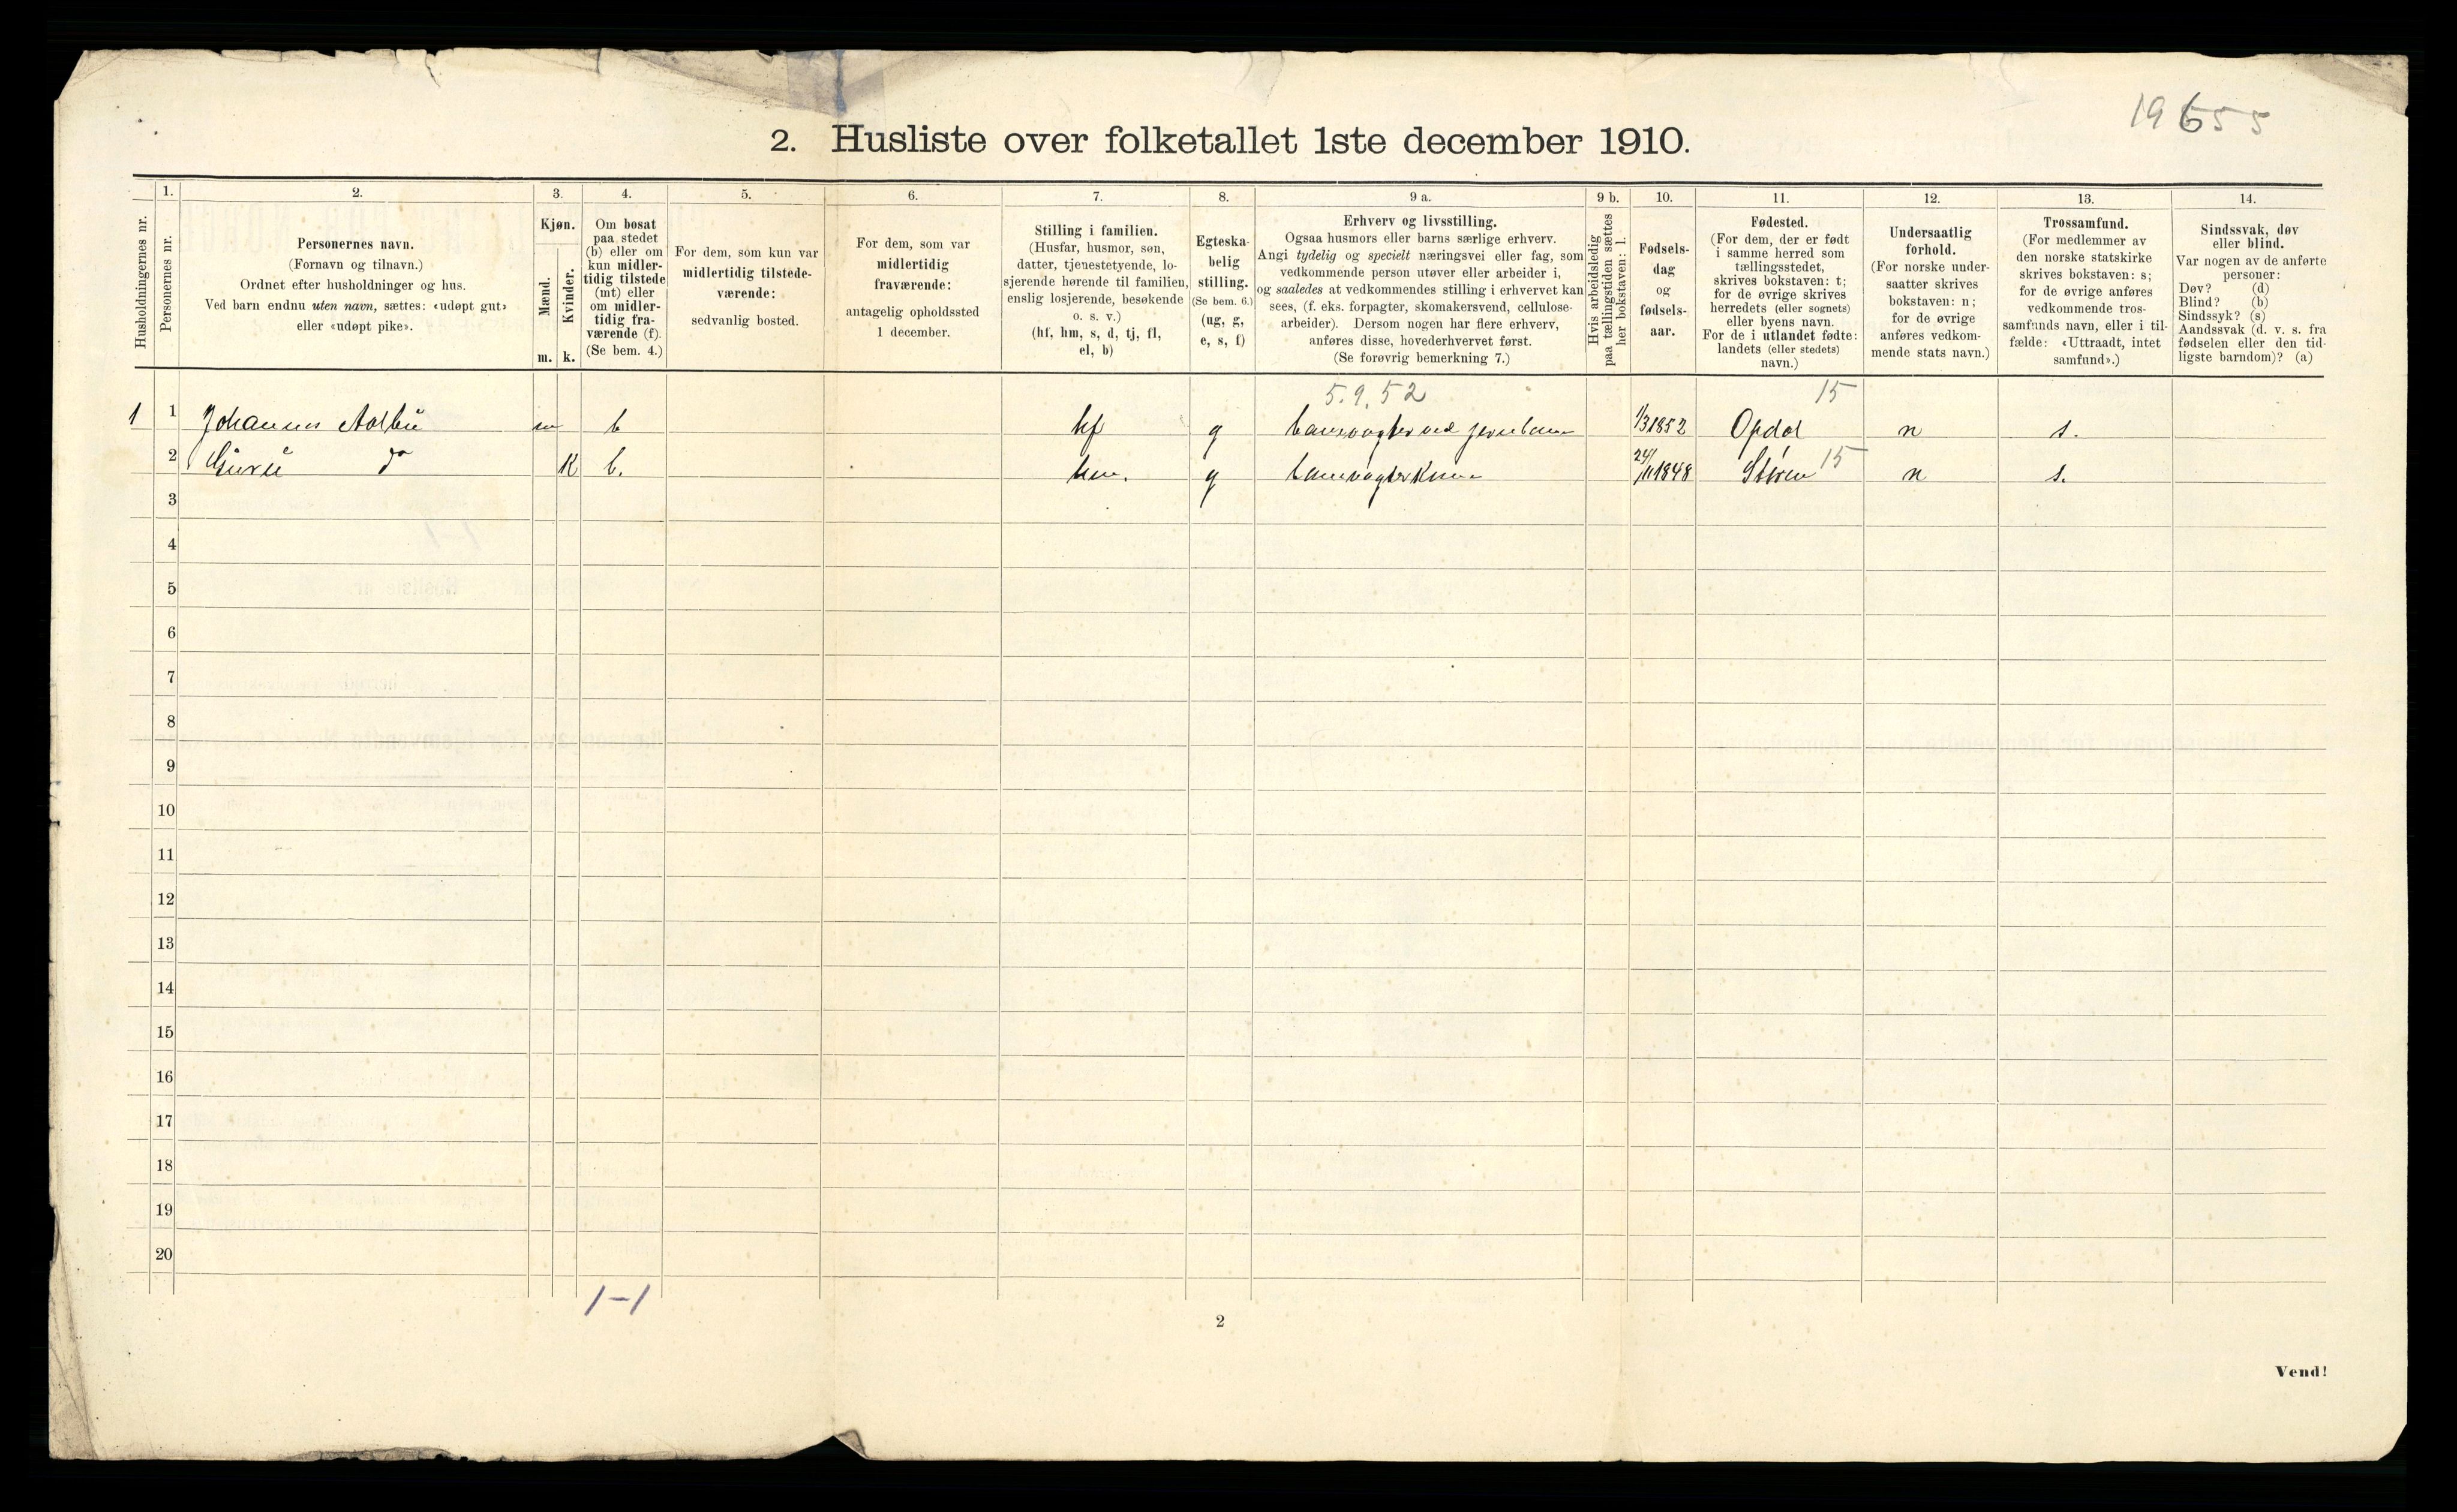 19655
2. Husliste over folketallet 1ste december 1910.
Husholdningernes nr.
1.
Personernes nr.
2.
Personernes navn.
(Fornavn og tilnavn.)
Ordnet efter husholdninger og hus.
Ved barn endnu uten navn, sættes: «udøpt gut»
eller «udøpt pike».
3.
Kjøn.
Mænd.
Kvinder.
m. k.
4.
Om bosat
paa stedet
(b) eller om
kun midler-
tidig tilstede
(mt) eller
om midler-
tidig fra-
værende (f).
(Se bem. 4.)
5.
For dem, som kun var
midlertidig tilstede-
værende:
sedvanlig bosted.
6.
For dem, som var
midlertidig
fraværende:
antagelig opholdssted
1 december.
7.
Stilling i familien.
(Husfar, husmor, søn,
datter, tjenestetyende, lo-
sjerende hørende til familien,
enslig losjerende, besøkende
o. s. v.)
(hf, hm, s, d, tj, fl,
el, b)
8.
Egteska-
belig
stilling.
(Se bem. 6.)
(ug, g,
e, s, f)
9 a.
Erhverv og livsstilling.
Ogsaa husmors eller barns særlige erhverv.
Angi tydelig og specielt næringsvei eller fag, som
vedkommende person utøver eller arbeider i,
og saaledes at vedkommendes stilling i erhvervet kan
sees, (f. eks. forpagter, skomakersvend, cellulose-
arbeider). Dersom nogen har flere erhverv,
anføres disse, hovederhvervet først.
(Se forøvrig bemerkning 7.)
9 b.
Hvis arbeidsledig
paa tællingstiden sættes
her bokstaven: l.
10.
Fødsels-
dag
og
fødsels-
aar.
11.
Fødested.
(For dem, der er født
i samme herred som
tællingsstedet,
skrives bokstaven: t;
for de øvrige skrives
herredets (eller sognets)
eller byens navn.
For de i utlandet fødte:
landets (eller stedets)
navn.)
12.
Undersaatlig
forhold.
(For norske under-
saatter skrives
bokstaven: n;
for de øvrige
anføres vedkom-
mende stats navn.)
13.
Trossamfund.
(For medlemmer av
den norske statskirke
skrives bokstaven: s;
for de øvrige anføres
vedkommende tros-
samfunds navn, eller i til-
fælde: «Uttraadt, intet
samfund».)
14.
Sindssvak, døv
eller blind.
Var nogen av de anførte
personer:
Døv? (d)
Blind? (b)
Sindssyk? (s)
Aandssvak (d. v. s. fra
fødselen eller den tid-
ligste barndom)? (a)
5.9.52 15
1 1 Johannes Aalbu m b hf g banevogter ved jernbane 1/3 1852 Opdal n s.
2 Guru do K b. hm. g banevogterkone 24/11 1848 Støren 15 n s.
3
4
5
6
7
8
9
10
11
12
13
14
15
16
17
18
19
20
1-1
2
Vend!